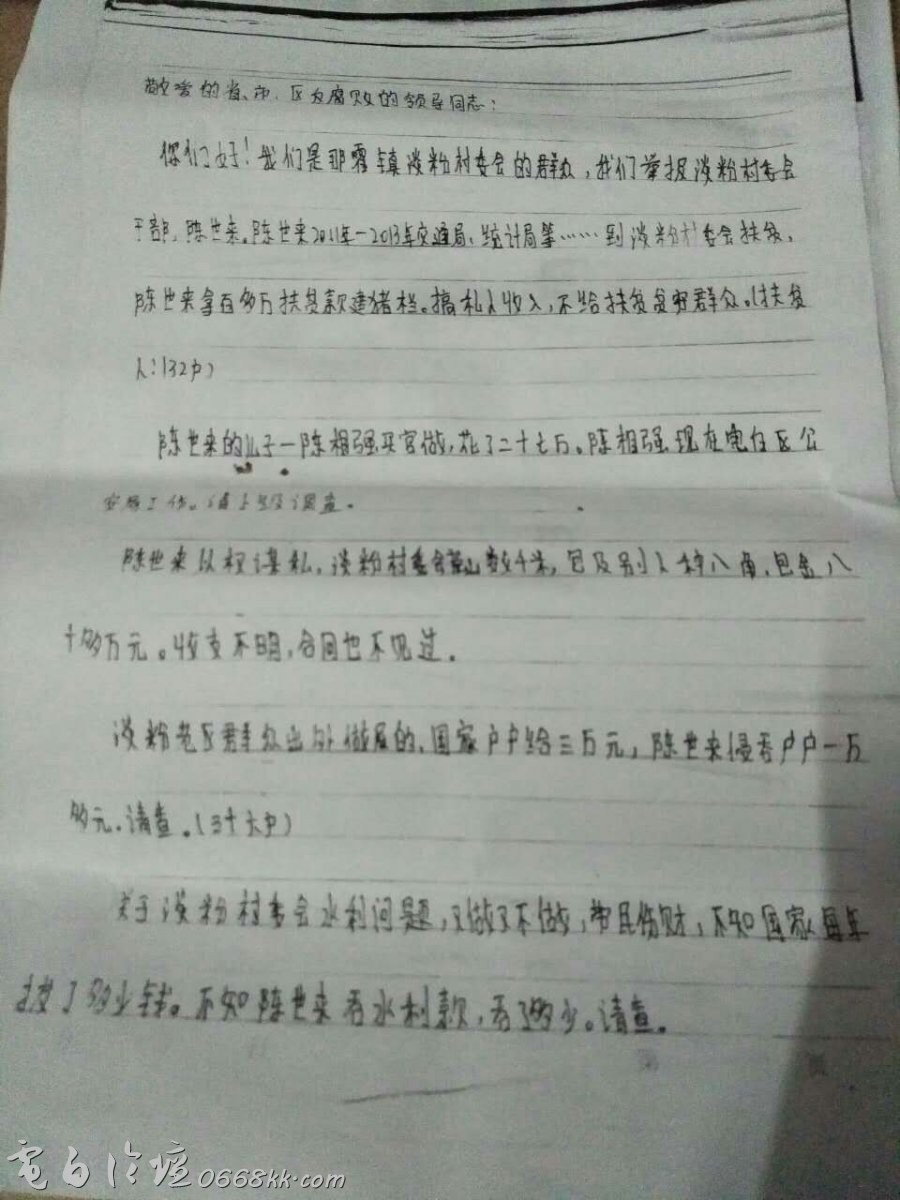 敬爱的省、市、区反腐败的领导同志：
你们好！我们是那霍镇淡粉村委会的群众，我们举报淡粉村委会
干部，陈世来。陈世来2011年—2013年交通局、统计局等……到淡粉村委会扶贫，
陈世来拿百多万扶贫款建猪档。搞私人收入，不给扶贫贫穷群众。(扶贫
人：132户)
陈世来的儿子—陈相强买官做，花了二十七万。陈相强现在电白区公
安局工作。请上级调查。
陈世来以权谋私，淡粉村委会荒山数千米，包及别人种八角，包金八
十多万元。收支不明，合同也不见过。
淡粉老区群众出外做屋的，国家户户给三万元，陈世来侵吞户户一万
多元。请查。(三十六户)
关于淡粉村委会水利问题，又做又不做，劳民伤财，不知国家每年
拨了多少钱。不知陈世来吞水利款，吞了多少。请查。
第 页
電白论坛0668kk.com